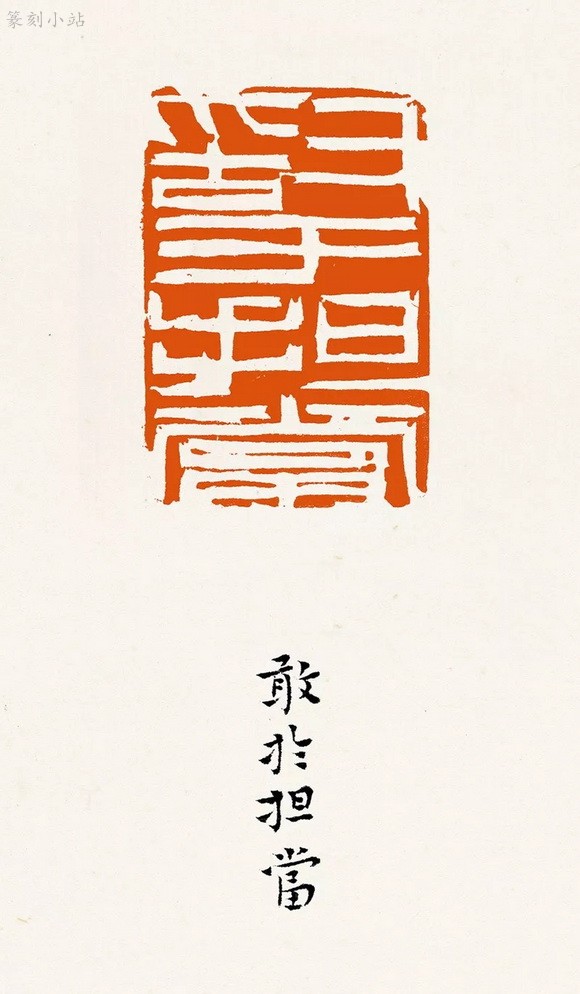 篆刻小站
敢于担當
敢於担當